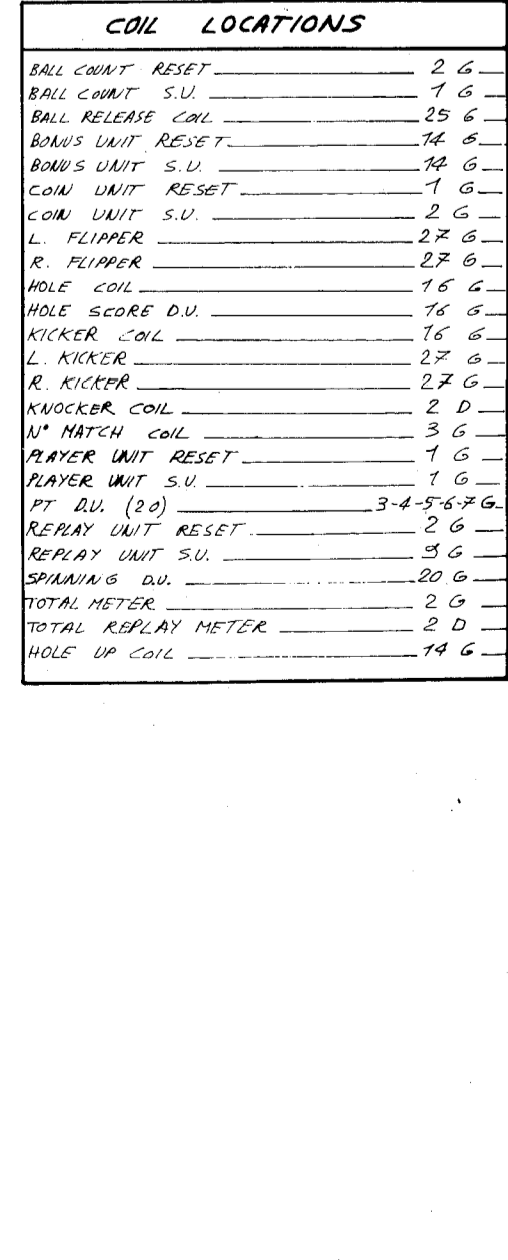 COIL LOCATIONS
BALL COUNT RESET 2 G
BALL COUNT S.U. 1 G
BALL RELEASE COIL 25 G
BONUS UNIT RESET 14 G
BONUS UNIT S.U. 14 G
COIN UNIT RESET 1 G
COIN UNIT S.U. 2 G
L. FLIPPER 27 G
R. FLIPPER 27 G
HOLE COIL 16 G
HOLE SCORE D.U. 16 G
KICKER COIL 16 G
L. KICKER 27 G
R. KICKER 27 G
KNOCKER COIL 2 D
N° MATCH COIL 3 G
PLAYER UNIT RESET 1 G
PLAYER UNIT S.U. 1 G
PT D.U. (20) 3-4-5-6-7 G
REPLAY UNIT RESET 2 G
REPLAY UNIT S.U. G
SPINNING D.U. 20 G
TOTAL METER 2 G
TOTAL REPLAY METER 2 D
HOLE UP COIL 14 G